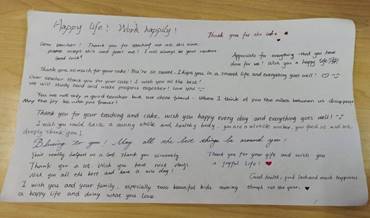 Happy life! Work happily!
Thank you for the cake.
Dear teacher! Thank you for teaching me all this time
please accept this and from me! I will always be your student
Good luck!
Appreciate for everything that you have
done for us! Wish you a happy life
Thank you so much for your cake! You're so sweet. I hope you in a travel life and everything goes well!
Dear teacher, thank you for your cake! I wish you all the best!
we will study hard and make progress together! Love you
You are not only a good teacher but we close friend. When I think of you the miles between us disappear
May the joy be with you forever!
Thank you for your teaching and cake. wish you happy every day and everything goes well!
I wish you could have a sunny smile and healthy body. you are a nice teacher, you teach us and we
deeply thank you!
Blessing to you! May all the best things be around you!
Your really helped us a lot. Thank you sincerely.
Thank you for your gifts and wish you
a joyful life!
Thank you a lot. Wish you best every day!
Wish you all the best and have a nice day!
Good health, good luck and much happiness
I wish you and your family, especially two beautiful kids
a happy life and doing what you love